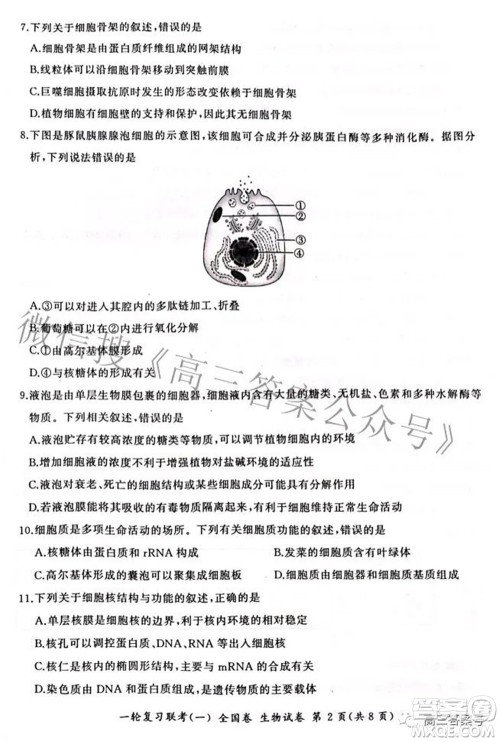 7.下列关于细胞骨架的叙述,错误的是
A.细胞骨架是由蛋白质纤维组成的网架结构
B.线粒体可以沿细胞骨架移动到突触前膜
C.巨噬细胞吞噬抗原时发生的形态改变依赖于细胞骨架
D.植物细胞有细胞壁的支持和保护,因此没有细胞骨架
8.下图是豚鼠胰腺腺泡细胞的示意图,该细胞可合成并分泌胰蛋白酶等多种消化酶。据图分
析,下列说法错误的是
①
②
③
④
A.③可以对进入其腔内的多肽链加工、折叠
B.葡萄糖可以在②中进行氧化分解
C.①由高尔基体膜形成
D.④与核糖体形成有关
9.液泡是由单层生物膜包裹的细胞器,细胞液内含有大量的糖类、无机盐、色素和多种水解酶等
物质。下列相关叙述,错误的是
A.液泡贮存有较高浓度的糖类等物质,可以调节植物细胞内的环境
B.增加细胞液的浓度,有利于增强植物对盐碱环境的适应性
C.液泡对衰老、死亡的细胞或某些细胞成分可能具有分解作用
D.若液泡膜能将其吸收的有毒物质分泌到液泡外,则更有利于细胞内环境的稳定
10.细胞质是多项生命活动的场所。下列有关细胞质功能的叙述,错误的是
A.核糖体由蛋白质和 rRNA 构成
B.发菜的细胞质中含有叶绿体
C.高尔基体形成的囊泡可以聚集成细胞板
D.植物细胞质中可以合成磷脂
11.下列关于细胞核结构与功能的叙述,正确的是
A.单层核膜是细胞核的边界,有利于核内环境的相对稳定
B.核孔可以控制蛋白质、DNA、RNA 等大分子进出细胞核
C.核仁是核内的椭圆形结构,主要与 mRNA 的合成有关
D.染色体主要由蛋白质和 DNA 组成,其中 DNA 是遗传物质
一轮复习联考(一) 全国卷 生物试卷 第 2 页(共 8 页)
微信搜《高三答案公众号》
高三答案号